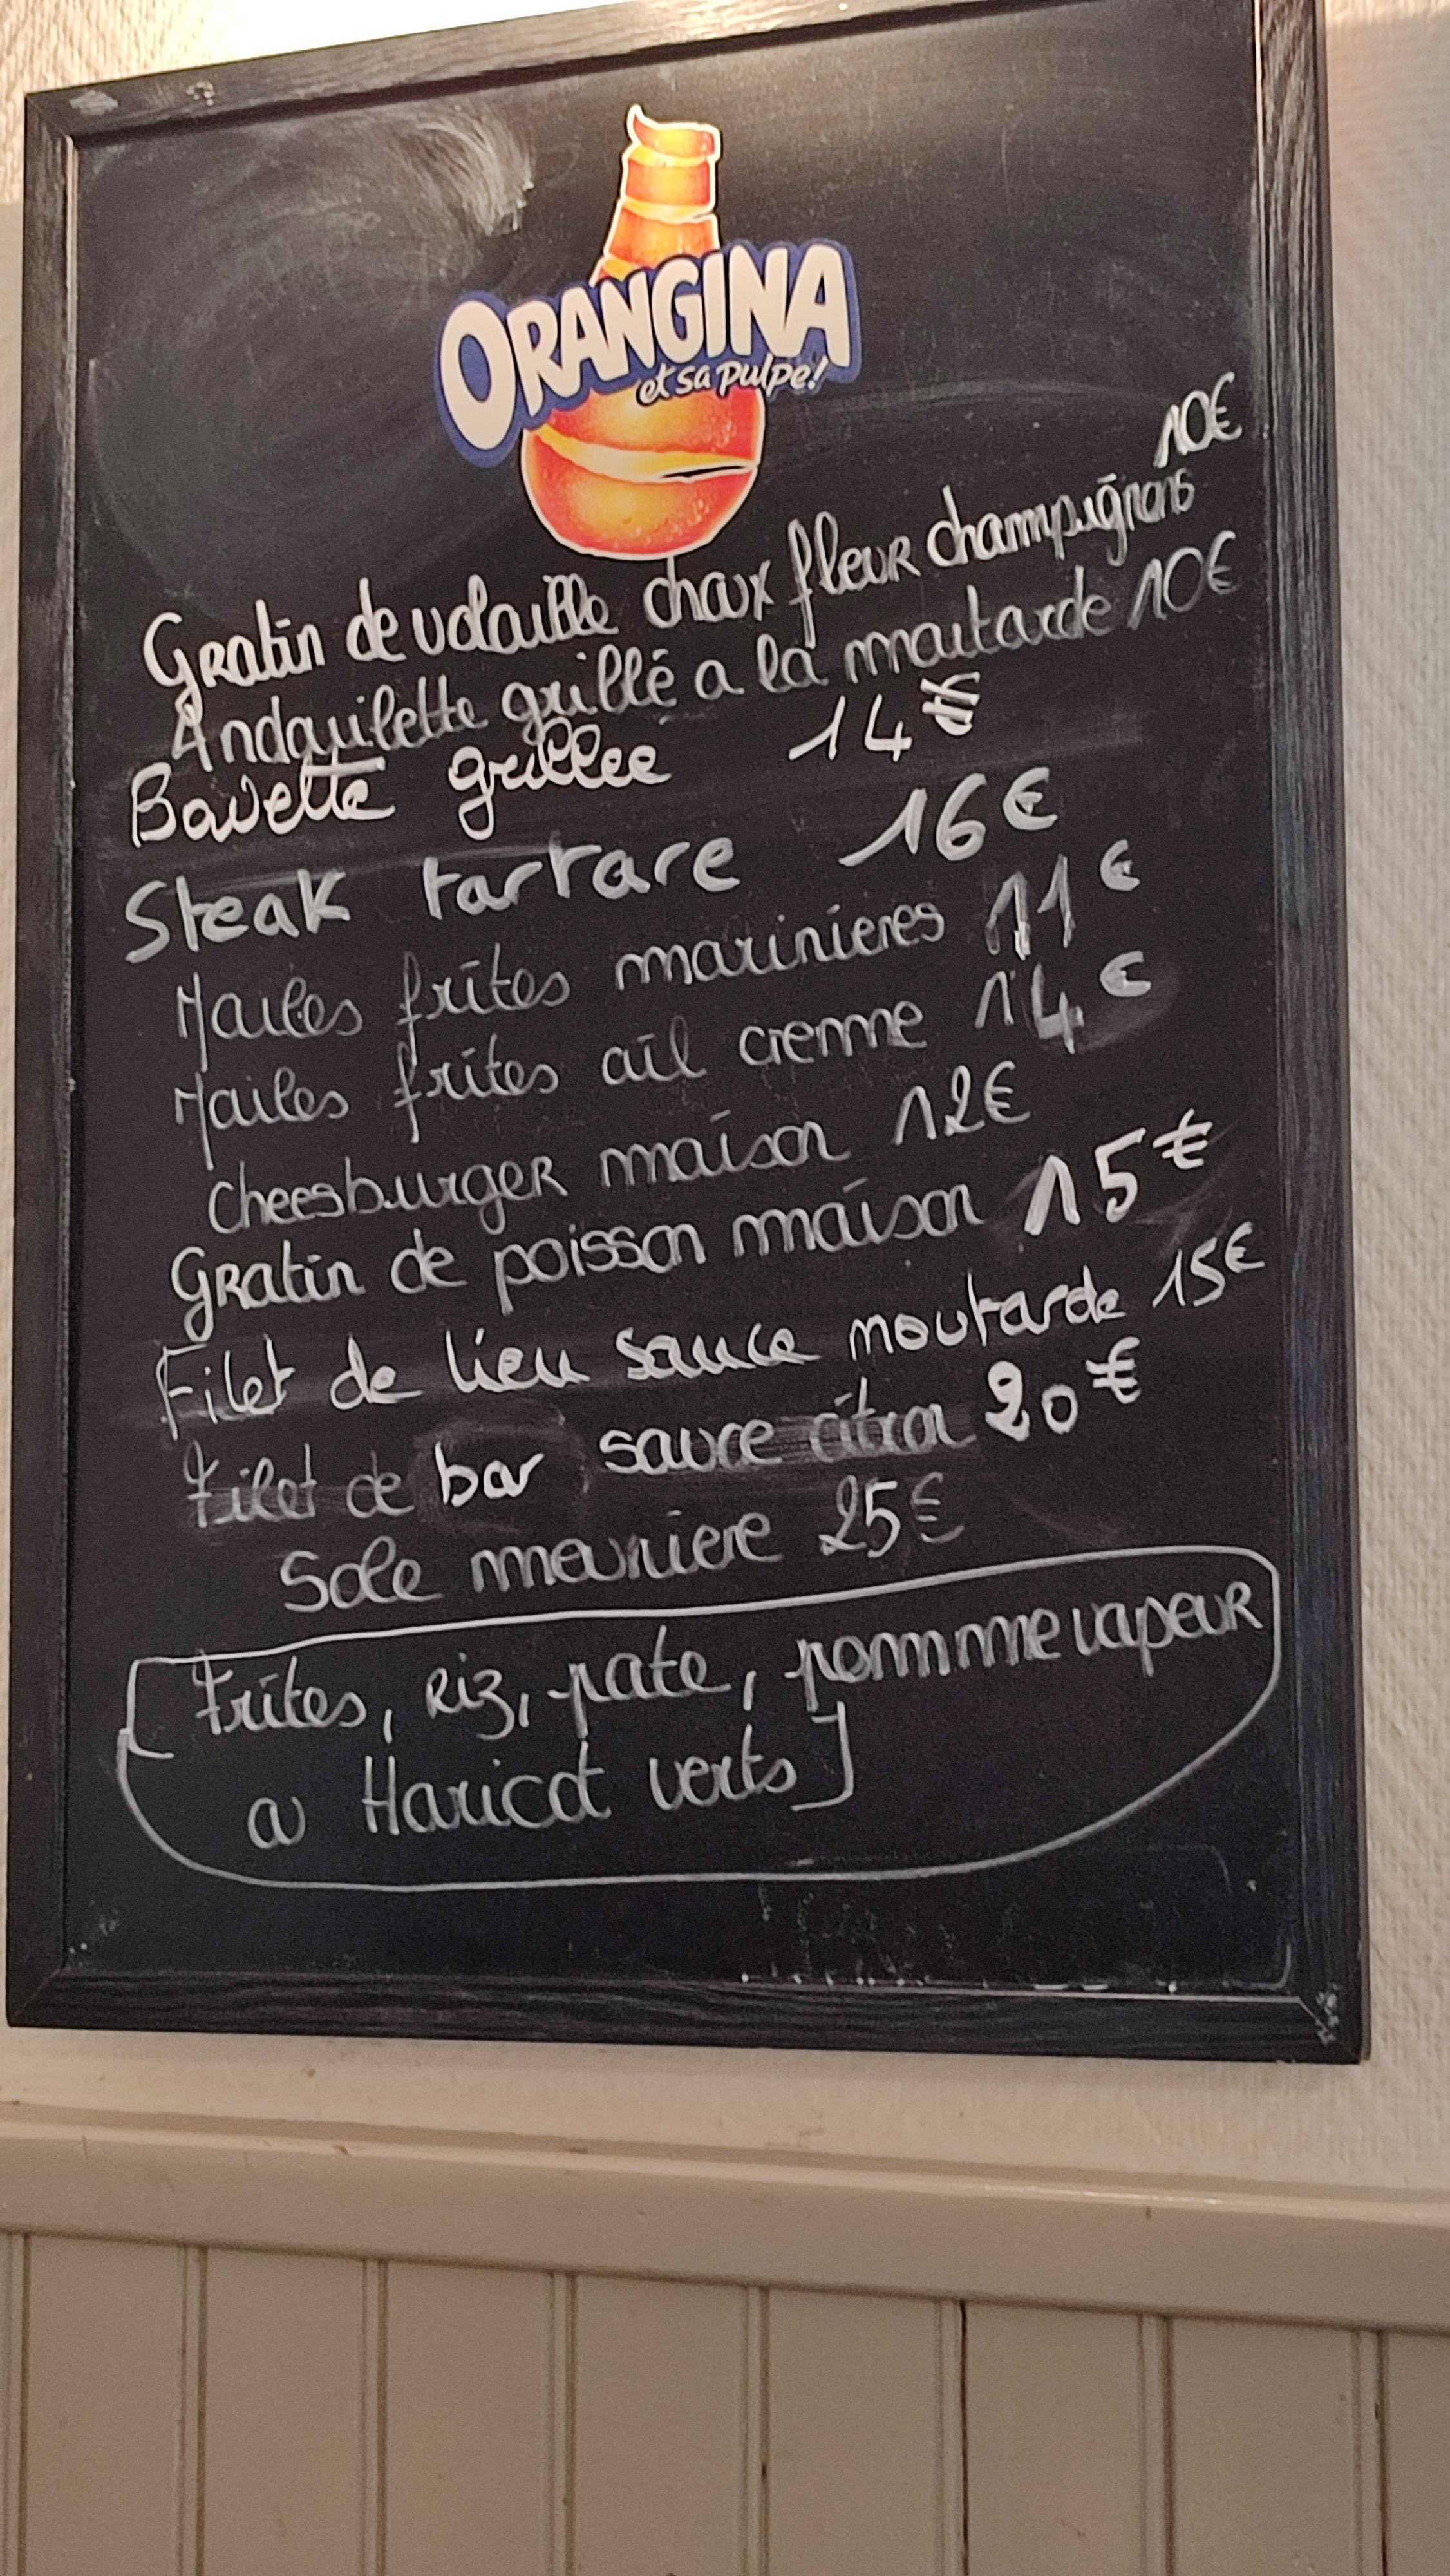 ORANGINA
et sa pulpe!
10€
Gratin de volaille choux fleur champignons
Andouillette grillé a la moutarde 10€
Bavette grillee 14€
Steak tartare 16€
Moules frites marinieres 11€
Moules frites ail creme 14€
Cheesburger maison 12€
Gratin de poisson maison 15€
Filet de lieu sauce moutarde 15€
Filet de bar sauce citron 20€
Sole meuniere 25€
[Frites, Riz, pate, pommme vapeur
ou Haricot verts]